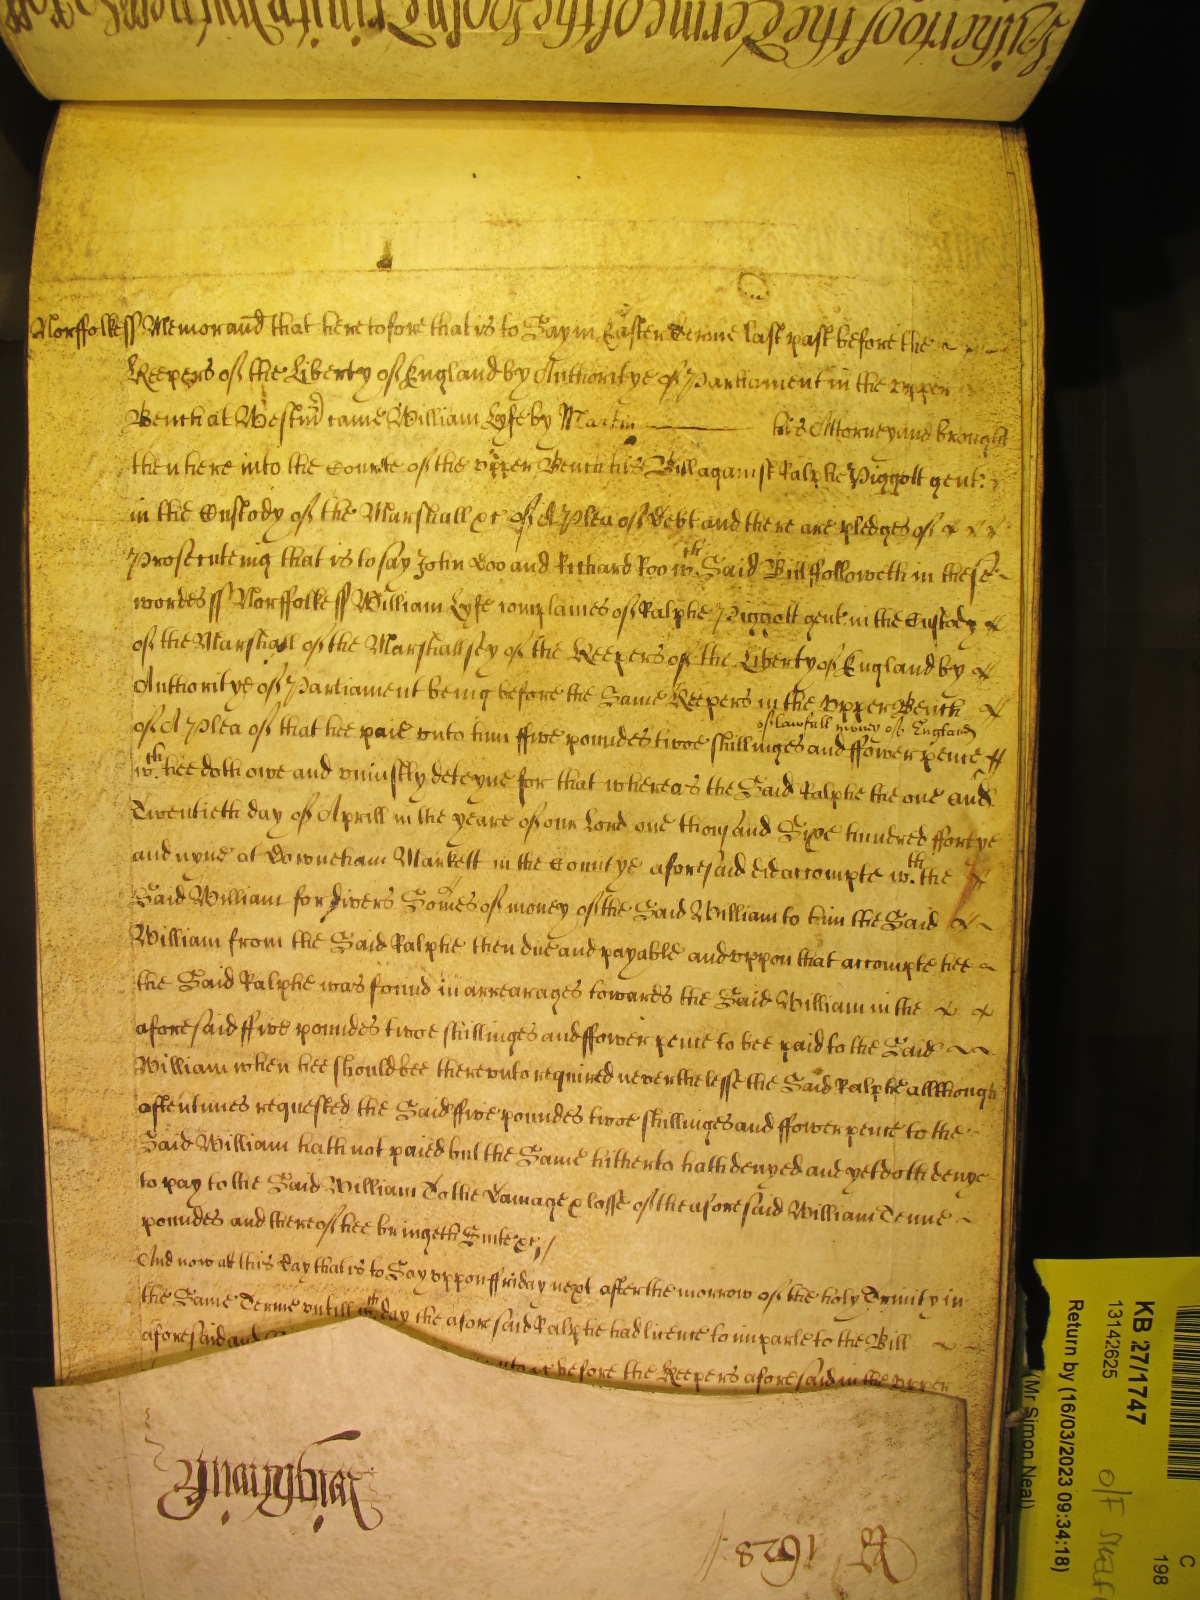 Hitherto of the Terme of the holy Trinity
Norffolke ss Memorand that heretofore that is to Say in Easter Terme last past before the
Keepers of the Liberty of England by Authoritye of Parliament in the vpper
Bench at Westm came William Lyfe by Martin his Attorney and brought
then here into the Courte of the vpper Bench his Bill against Ralphe Piggott gent:
in the Custody of the Marshall &c of A Plea of Debt and there are pledges of
Prosecuteing that is to say John Doo and Richard Roo wch Said Bill ffolloweth in these
wordes ss Norffolke ss William Lyfe complaines of Ralphe Piggott gent. in the Custody
of the Marshall of the Marshallsey of the Keepers of the Liberty of England by
Authoritye of Parliament being before the Same Keepers in the vpper Bench
of lawfull money of England
of A Plea of that hee paie vnto him ffive poundes twoe shillinges and ffower pence
wch hee doth owe and vniustly deteyne for that whereas the Said Ralphe the one and
Twentieth day of Aprill in the yeare of our Lord one thousand Sixe hundred ffortye
and nyne at Downeham Markett in the Countye aforesaid did accompte wth the
Said William for divers Somes of money of the Said William to him the Said
William from the Said Ralphe then due and payable and vppon that accompte hee
the Said Ralphe was found in arrearages towards the Said William in the
aforesaid ffive poundes twoe shillinges and ffower pence to bee paid to the Said
William when hee should bee therevnto required neverthelesse the Said Ralphe allthough
oftentimes requested the Said ffive poundes twoe shillinges and ffower pence to the
Said William hath not paied but the Same hitherto hath denyed and yet doth denye
to pay to the Said William To the Damage & losse of the aforesaid William Tenne
poundes and thereof hee bringeth Suite &c //
And now att this day that is to Say vppon ffriday next after the morrow of the holy Trinity in
the Same Terme vntill wch day the aforesaid Ralphe had licence to imparle to the Bill
aforesaid and
before the Keepers aforesaid in the vpper
Ro 1628
KB 27/1747
13142625
Return by (16/03/2023 09:34:18)
(Mr Simon Neal)
C
198
O/F Shelf